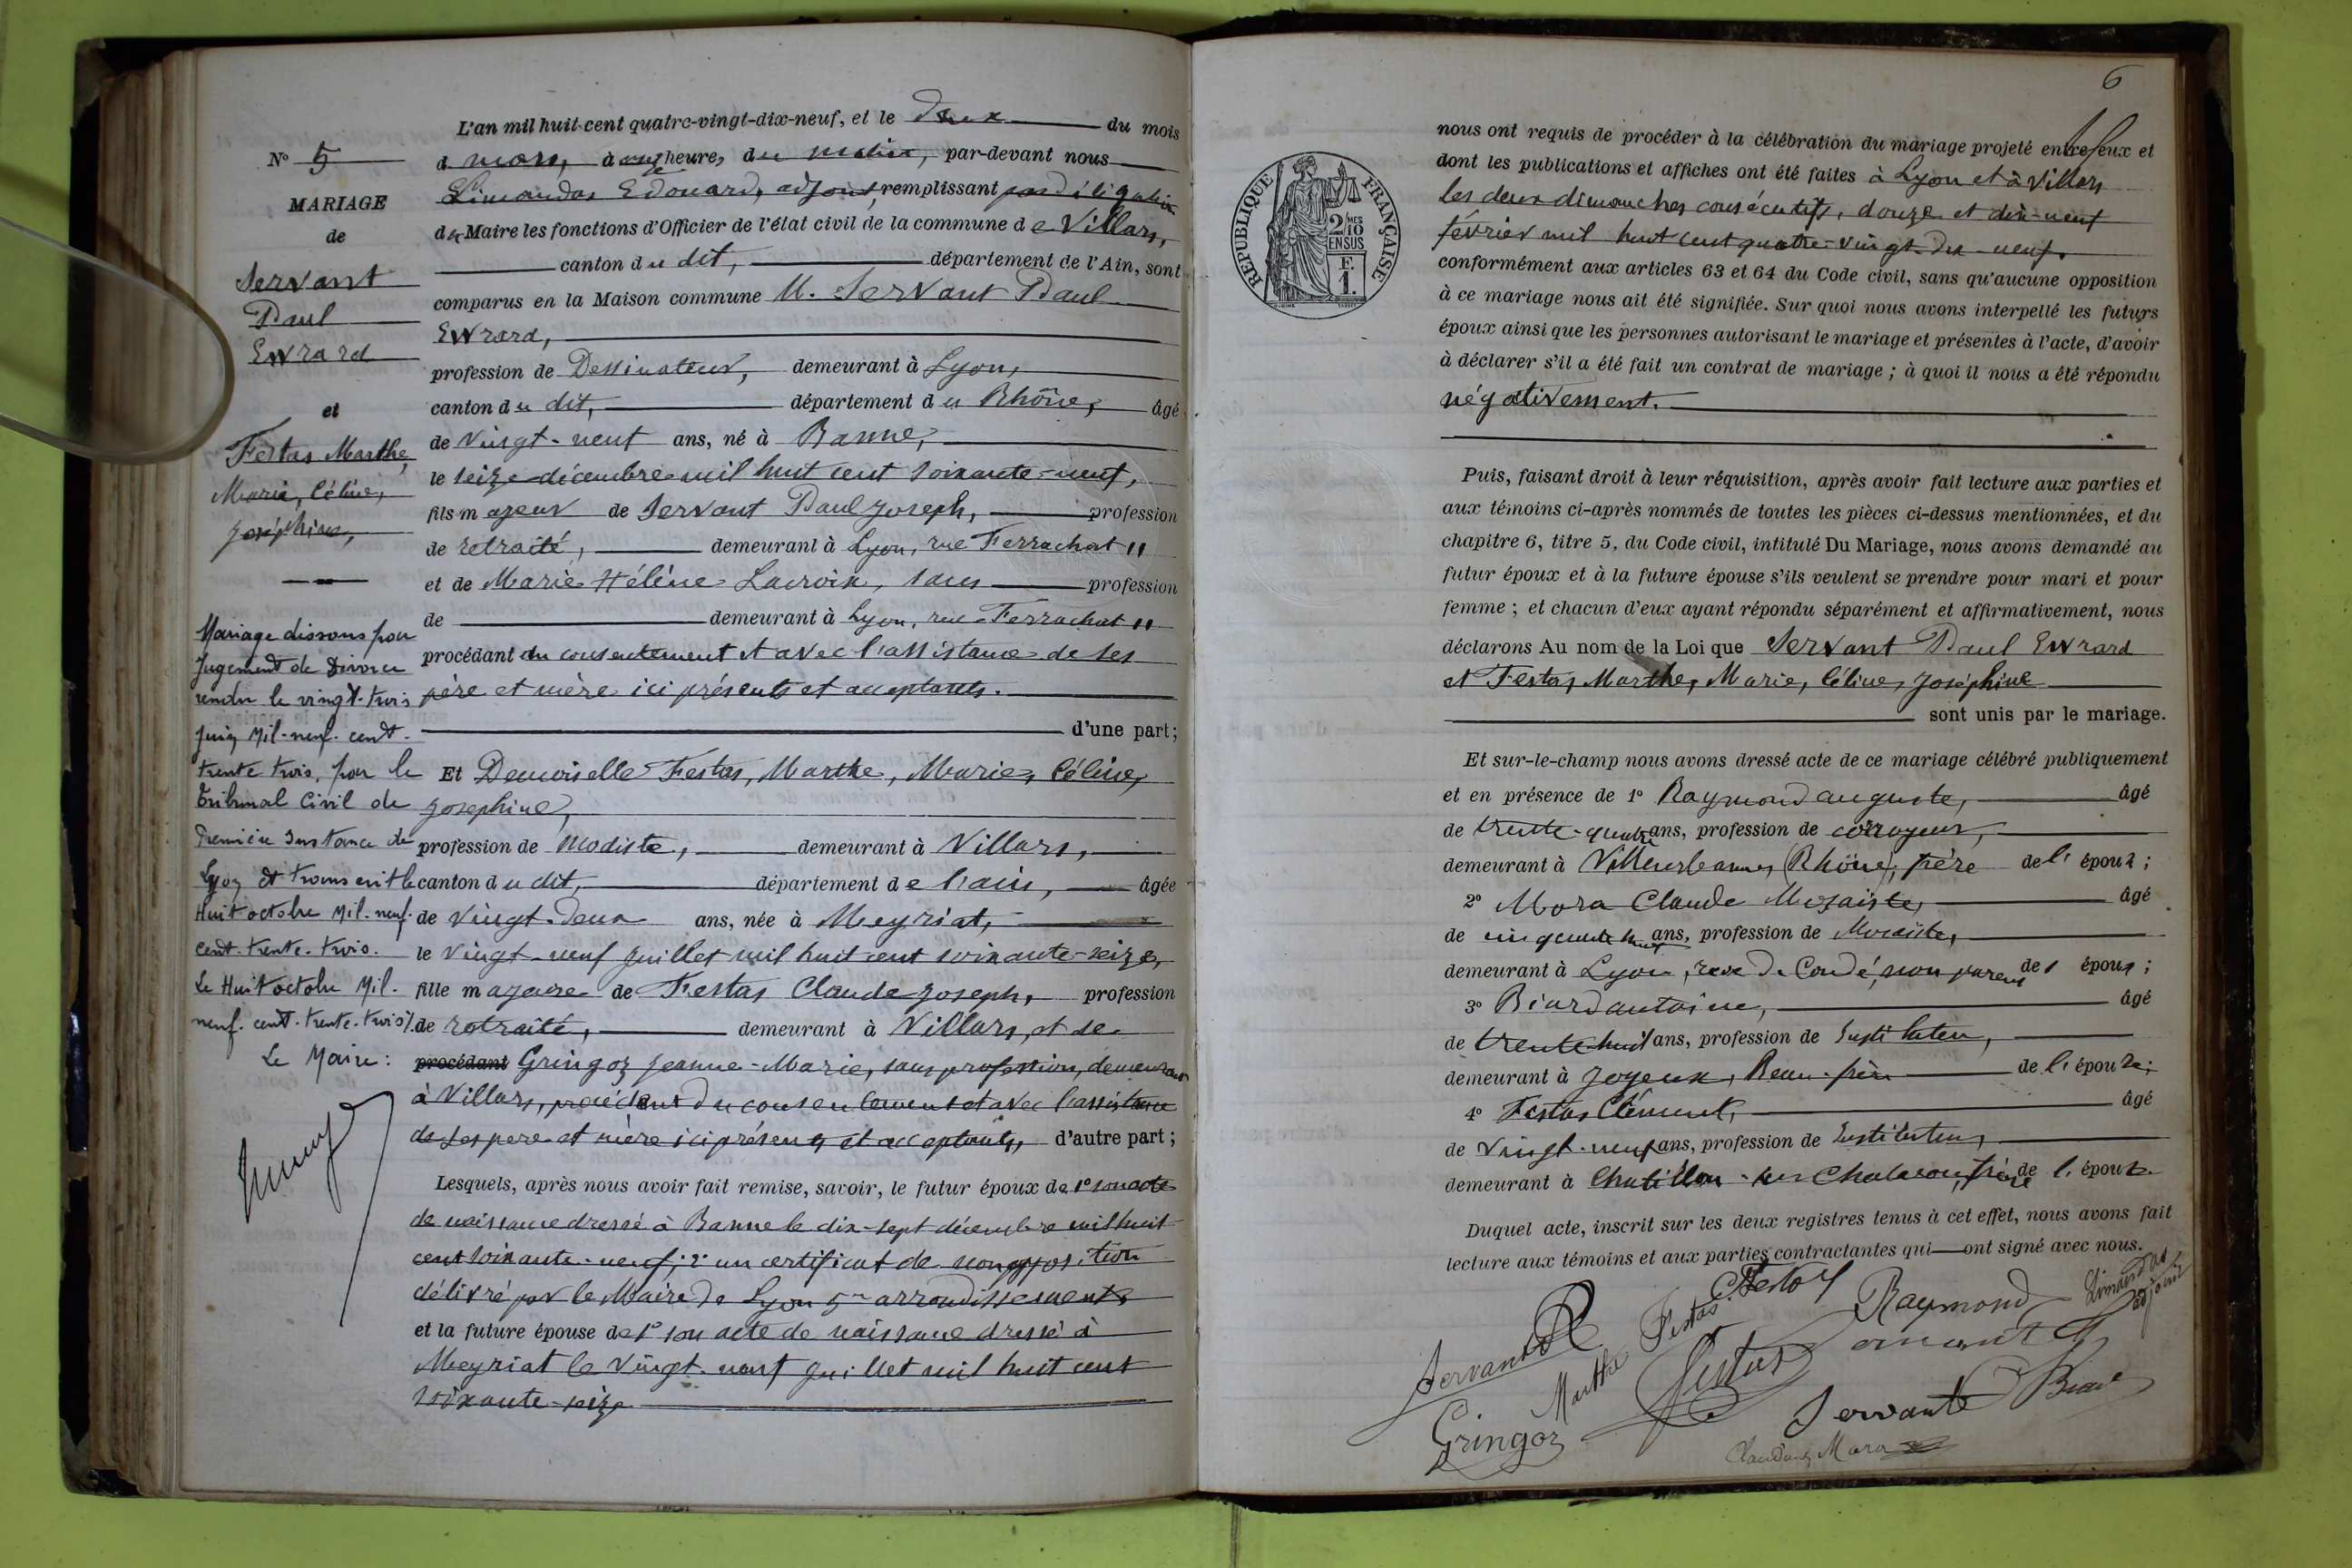 L'an mil huit-cent quatre-vingt-dix-neuf, et le deux du mois
d mars, à onze heures du matin, par-devant nous
Limandas Edouard, adjoint, remplissant par délégation
du Maire les fonctions d'Officier de l'état civil de la commune de Villars,
canton du dit, département de l'Ain, sont
comparus en la Maison commune M. Servant Paul
Ewrard,
profession de Dessinateur, demeurant à Lyon,
canton du dit, département du Rhône, âgé
de vingt-neuf ans, né à Banne,
le seize décembre mil huit cent soixante-neuf,
fils majeur de Servant Paul Joseph, profession
de retraité, demeurant à Lyon, rue Ferrachat 11
et de Marie Hélène Lacroix, sans profession
de demeurant à Lyon, rue Ferrachat 11
procédant du consentement et avec l'assistance de ses
père et mère ici présents et acceptants.
d'une part;
Et Demoiselle Festas, Marthe, Marie, Céline,
Joséphine,
profession de Modiste, demeurant à Villars,
canton du dit, département de l'ain, âgée
de vingt-deux ans, née à Meyriat,
le vingt-neuf juillet mil huit cent soixante-seize,
fille majeure de Festas Claude Joseph, profession
de retraité, demeurant à Villars, et de
procédant Gringoz Jeanne-Marie, sans profession, demeurant
à Villars, procédant du consentement et avec l'assistance
de ses père et mère ici présents et acceptants, d'autre part;
Lesquels, après nous avoir fait remise, savoir, le futur époux de 1° son acte
de naissance dressé à Banne le dix-sept décembre mil huit
cent soixante-neuf; 2° un certificat de non opposition
délivré par le Maire de Lyon 5me arrondissement,
et la future épouse de 1° son acte de naissance dressé à
Meyriat le vingt-neuf juillet mil huit cent
soixante-seize
N° 5
MARIAGE
de
Servant
Paul
Ewrard
et
Festas Marthe,
Marie, Céline,
Joséphine,
Mariage dissous par
Jugement de Divorce
rendu le vingt-trois
juin Mil-neuf-cent-
trente trois, par le
Tribunal Civil de
Première Instance de
Lyon et transcrit le
Huit octobre Mil-neuf-
cent-trente-trois.
Le Huit octobre Mil-
neuf-cent-trente-trois /.
Le Maire:
6
REPUBLIQUE FRANÇAISE
2 MES 10
EN SUS
F.
1.
nous ont requis de procéder à la célébration du mariage projeté entre eux et
dont les publications et affiches ont été faites à Lyon et à Villars
les deux dimanches consécutifs, douze et dix-neuf
février mil huit cent quatre-vingt-dix-neuf.
conformément aux articles 63 et 64 du Code civil, sans qu'aucune opposition
à ce mariage nous ait été signifiée. Sur quoi nous avons interpellé les futurs
époux ainsi que les personnes autorisant le mariage et présentes à l'acte, d'avoir
à déclarer s'il a été fait un contrat de mariage; à quoi il nous a été répondu
négativement.
Puis, faisant droit à leur réquisition, après avoir fait lecture aux parties et
aux témoins ci-après nommés de toutes les pièces ci-dessus mentionnées, et du
chapitre 6, titre 5, du Code civil, intitulé Du Mariage, nous avons demandé au
futur époux et à la future épouse s'ils veulent se prendre pour mari et pour
femme; et chacun d'eux ayant répondu séparément et affirmativement, nous
déclarons Au nom de la Loi que Servant Paul Ewrard
et Festas, Marthe, Marie, Céline, Joséphine
sont unis par le mariage.
Et sur-le-champ nous avons dressé acte de ce mariage célébré publiquement
et en présence de 1° Raymond auguste, âgé
de trente-quatre ans, profession de corroyeur,
demeurant à Villeurbanne, (Rhône), frère de l'époux;
2° Mora Claude Mozaiste, âgé
de cinquante huit ans, profession de Mosaïste,
demeurant à Lyon, rue de Condé, non parent de l époux;
3° Biard antoine, âgé
de trente-huit ans, profession de Instituteur,
demeurant à Joyeux, Beau-frère de l'épouse;
4° Festas Clément, âgé
de vingt-neuf ans, profession de Instituteur,
demeurant à Chatillon-sur Chalaronne, frère de l'épouse.
Duquel acte, inscrit sur les deux registres tenus à cet effet, nous avons fait
lecture aux témoins et aux parties contractantes qui ont signé avec nous.
Servant Marthe Festas C Festas Raymond Limandas adjoint
Gringoz Festas Servant Biard
Mora